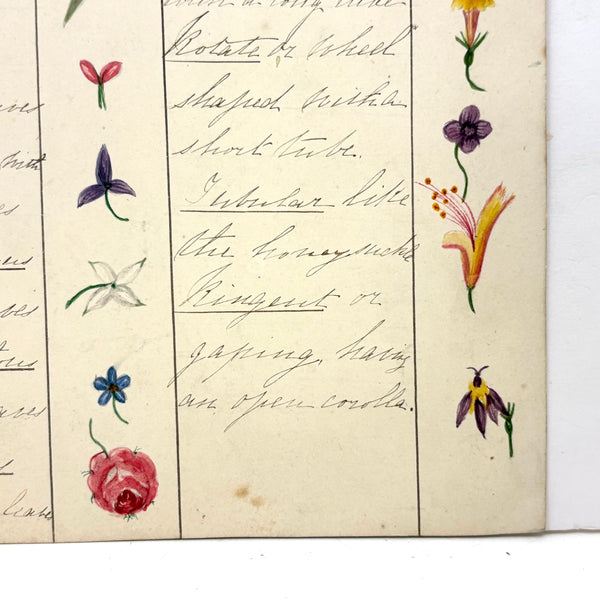 with a long tube
Rotate or wheel
shaped with a
short tube.
Tubular like
the honeysuckle
Ringent or
gaping, having
an open corolla.
with
leaves